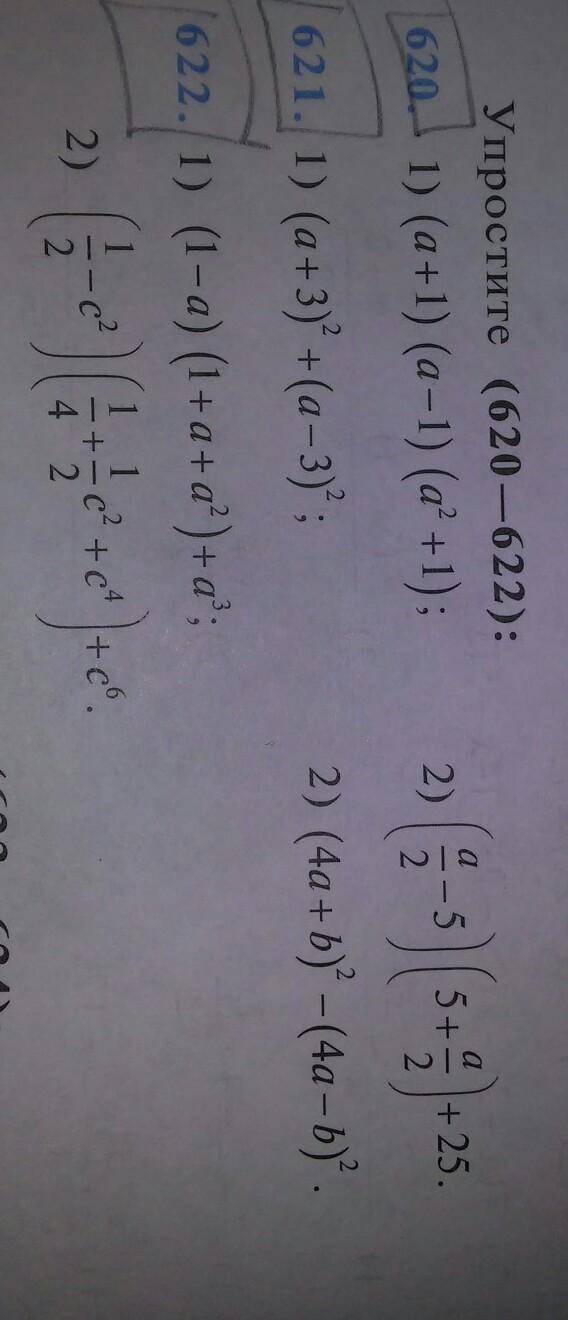 Упростите (620—622):
620. 1) (a+1)(a−1)(a²+1); 2) (a/2−5)(5+a/2)+25.
621. 1) (a+3)²+(a−3)²; 2) (4a+b)²−(4a−b)².
622. 1) (1−a)(1+a+a²)+a³;
2) (1/2−c²)(1/4+1/2c²+c⁴)+c⁶.